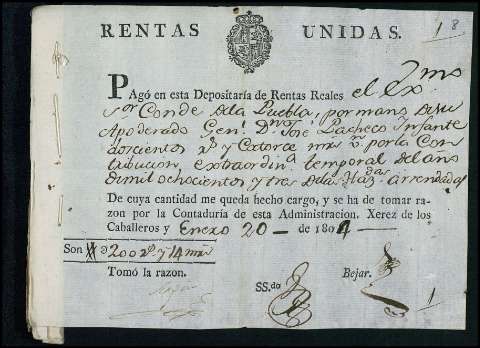 RENTAS UNIDAS.
1 8
Pagó en esta Depositaría de Rentas Reales el Exmo
Sor Conde dela Puebla, por mano de su
Apoderado Genl. Dn. José Pacheco Infante
doscientos rs. y Catorce mrs. vn. por la Con
tribución extraordina. temporal del año
de mil ochocientos y tres delas Hazdas. arrendadas
De cuya cantidad me queda hecho cargo, y se ha de tomar ra-
zon por la Contaduría de esta Administracion. Xerez de los
Caballeros y Enero 20 - de 1804 -
Son 200 rs. y 14 mrs
Tomó la razon.
SS.do
Bejar.
1